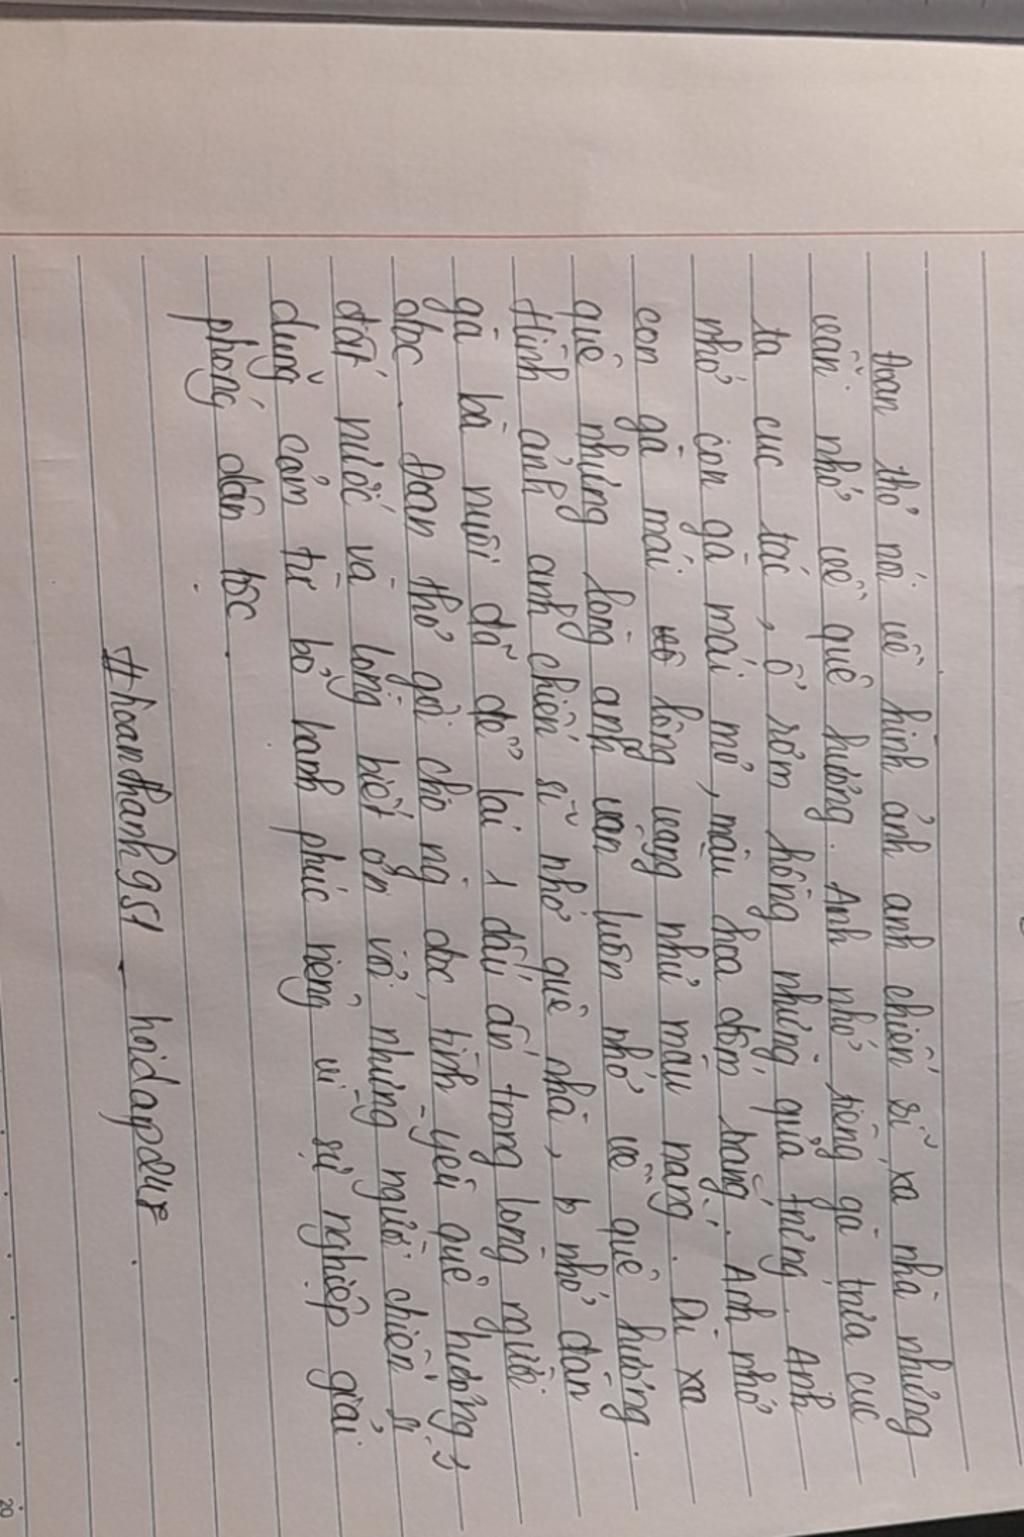 Đoạn thơ nói về hình ảnh anh chiến sĩ xa nhà nhưng
vẫn nhớ về quê hương. Anh nhớ tiếng gà trưa cục
ta cục tác, ổ rơm hồng những quả trứng. Anh
nhớ con gà mái mơ, màu hoa đốm trắng. Anh nhớ
con gà mái lông vàng như màu nắng. Dù xa
quê nhưng lòng anh vẫn luôn nhớ về quê hương.
Hình ảnh anh chiến sĩ nhớ quê nhà, b nhớ đàn
gà bà nuôi đã để lại 1 dấu ấn trong lòng người
đọc. Đoạn thơ gởi cho ng đọc tình yêu quê hương,
đất nước và lòng biết ơn với những người chiến sĩ
dũng cảm từ bỏ hạnh phúc riêng vì sự nghiệp giải
phóng dân tộc.
#hoanthanh951 _ hoidap247
20